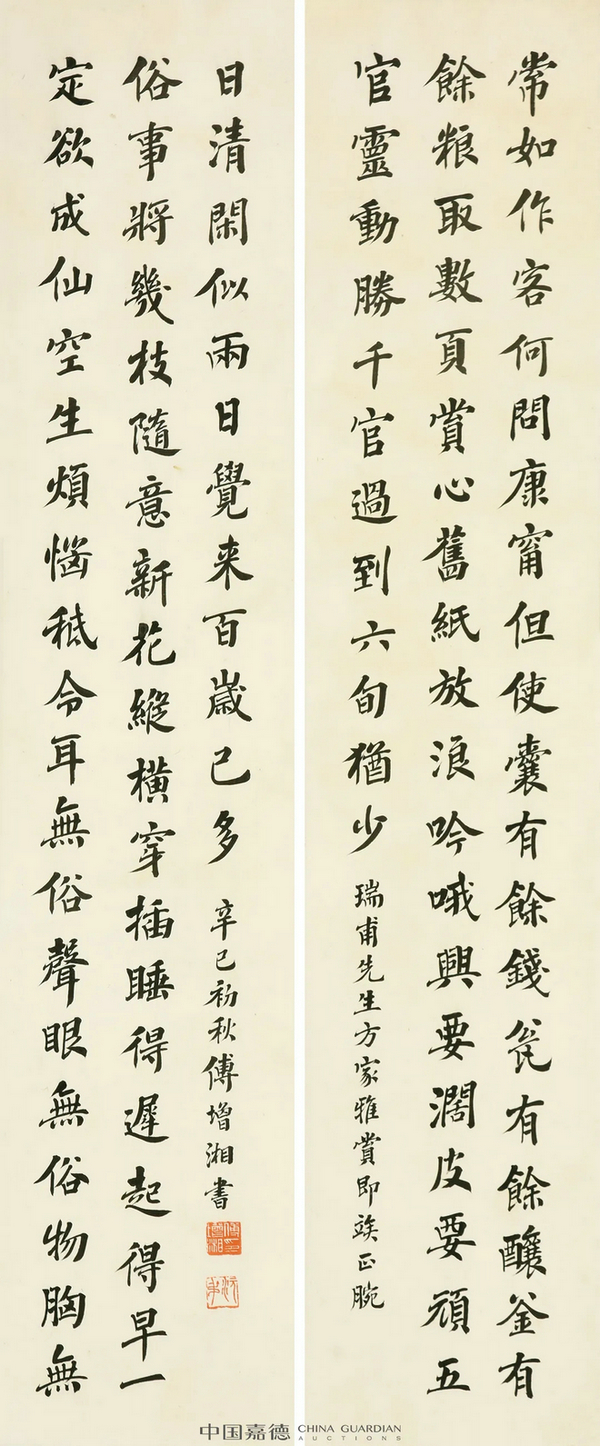 常如作客何問康甯但使囊有餘錢瓮有餘釀釜有
餘粮取數頁賞心舊紙放浪吟哦興要濶皮要頑五
官靈動勝千官過到六旬猶少
瑞甫先生方家雅賞即竢正腕
定欲成仙空生煩惱秪令耳無俗聲眼無俗物胸無
俗事將幾枝隨意新花縱橫穿插睡得遲起得早一
日清閑似兩日覺来百歲已多
辛巳初秋傅增湘書
中国嘉德 CHINA GUARDIAN
AUCTIONS